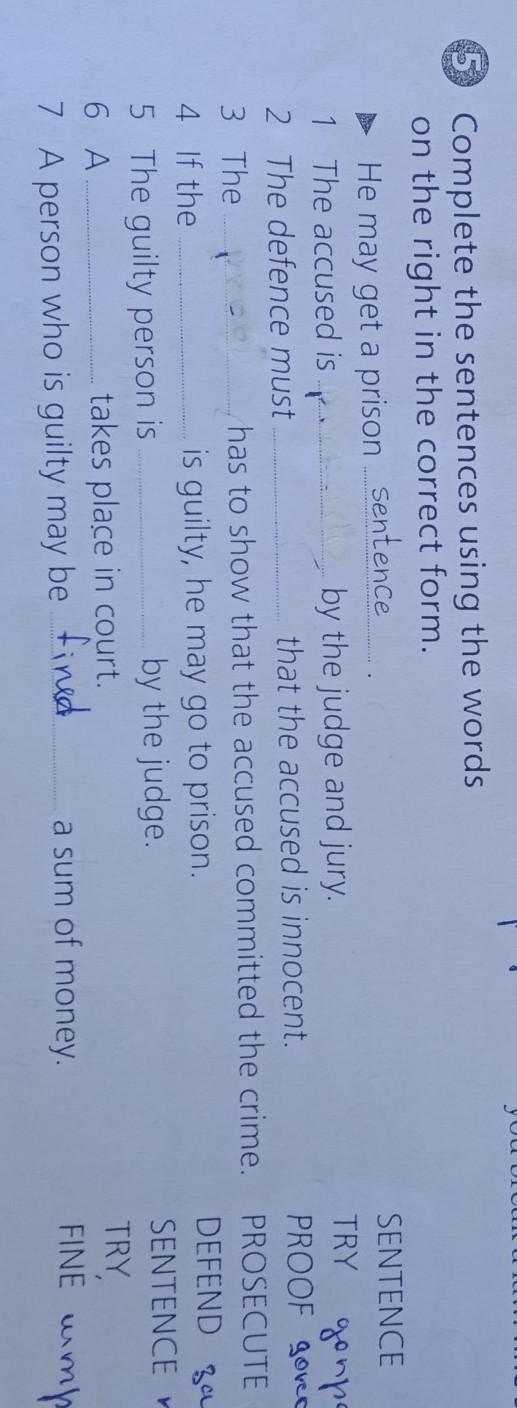 5 Complete the sentences using the words
on the right in the correct form.
▶ He may get a prison sentence. SENTENCE
1 The accused is .......... by the judge and jury. TRY
2 The defence must .......... that the accused is innocent. PROOF
3 The .......... has to show that the accused committed the crime. PROSECUTE
4 If the .......... is guilty, he may go to prison. DEFEND
5 The guilty person is .......... by the judge. SENTENCE
6 A .......... takes place in court. TRY
7 A person who is guilty may be fined a sum of money. FINE